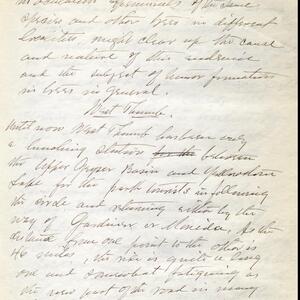 specimens of the same
species and other trees in different
localities might clear up the cause
and nature of this
and the subject of tumor formations
in trees in general.
West Thumb.
Until now West Thumb has been only
a lunching station between
the Upper Geyser Basin and Yellowstone
Lake for the park tourists in following
the circle and returning either by the
way of Gardiner or Monida. As the
distance from one point to the other is
46 miles, the ride is quite a long
one and somewhat fatiguing as
the new part of the road in many